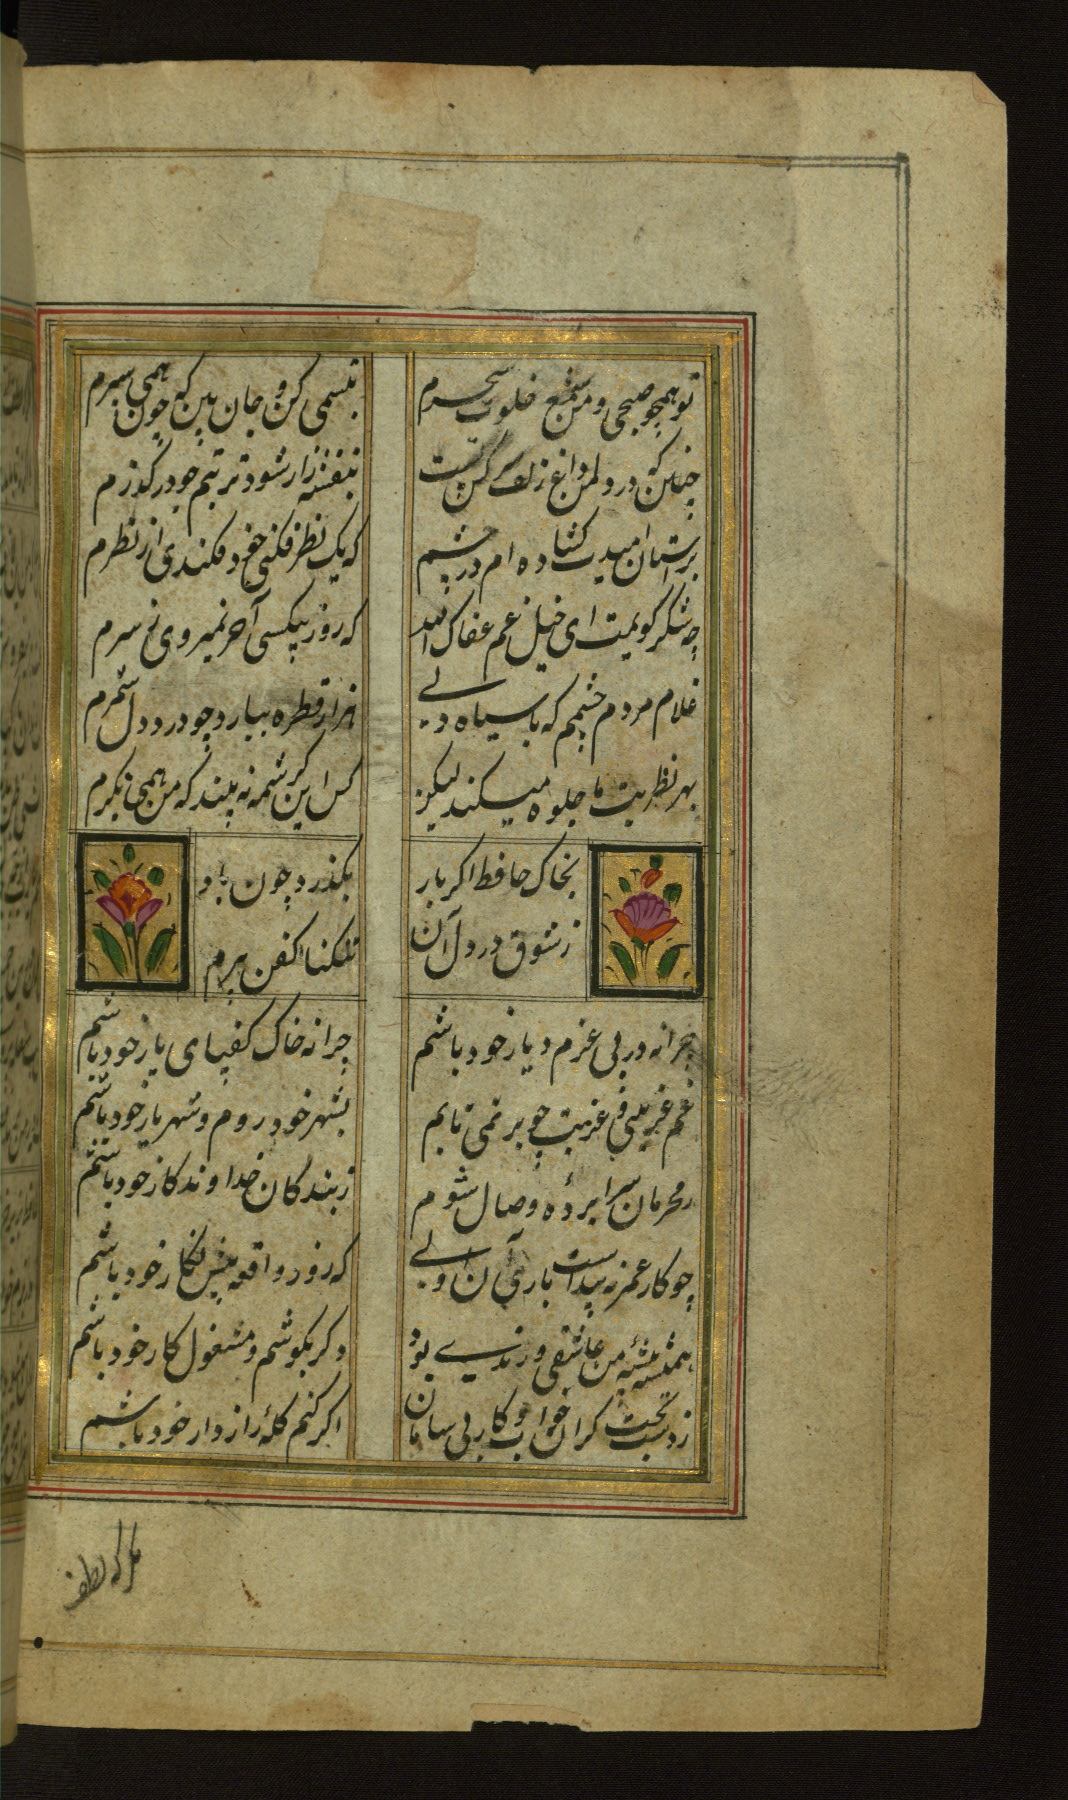 تو همچو صبحی و من شمع خلوت سحرم
تبسمی کن و جان بین که چون همی سپرم
چنین که در دل من داغ زلف سرکش تست
بنفشه زار شود تربتم چو در گذرم
بر آستان امیدت گشاده ام در چشم
که یک نظر فکنی خود فکندی از نظرم
چه شکر گویمت ای خیل غم عفاک الله
که روز بیکسی آخر نمیروی ز سرم
غلام مردم چشمم که با سیاه دلی
هزار قطره ببارد چو درد دل شمرم
بهر نظر بت ما جلوه میکند لیکن
کس این کرشمه نه بیند که من همی نگرم
بخاک حافظ اگر یار
بگذرد چون باد
ز شوق در دل آن
تنگنا کفن بدرم
چرا نه در پی عزم دیار خود باشم
چرا نه خاک کف پای یار خود باشم
غم غریبی و غربت چو بر نمی تابم
بشهر خود روم و شهریار خود باشم
ز محرمان سراپردهٔ وصال شوم
ز بندگان خداوندگار خود باشم
چو کار عمر نه پیداست باری آن اولی
که روز واقعه پیش نگار خود باشم
همیشه پیشهٔ من عاشقی و رندی بود
دگر بکوشم و مشغول کار خود باشم
ز دست بخت گران خواب و کار بی سامان
اگر کنم گلهٔ راز دار خود باشم